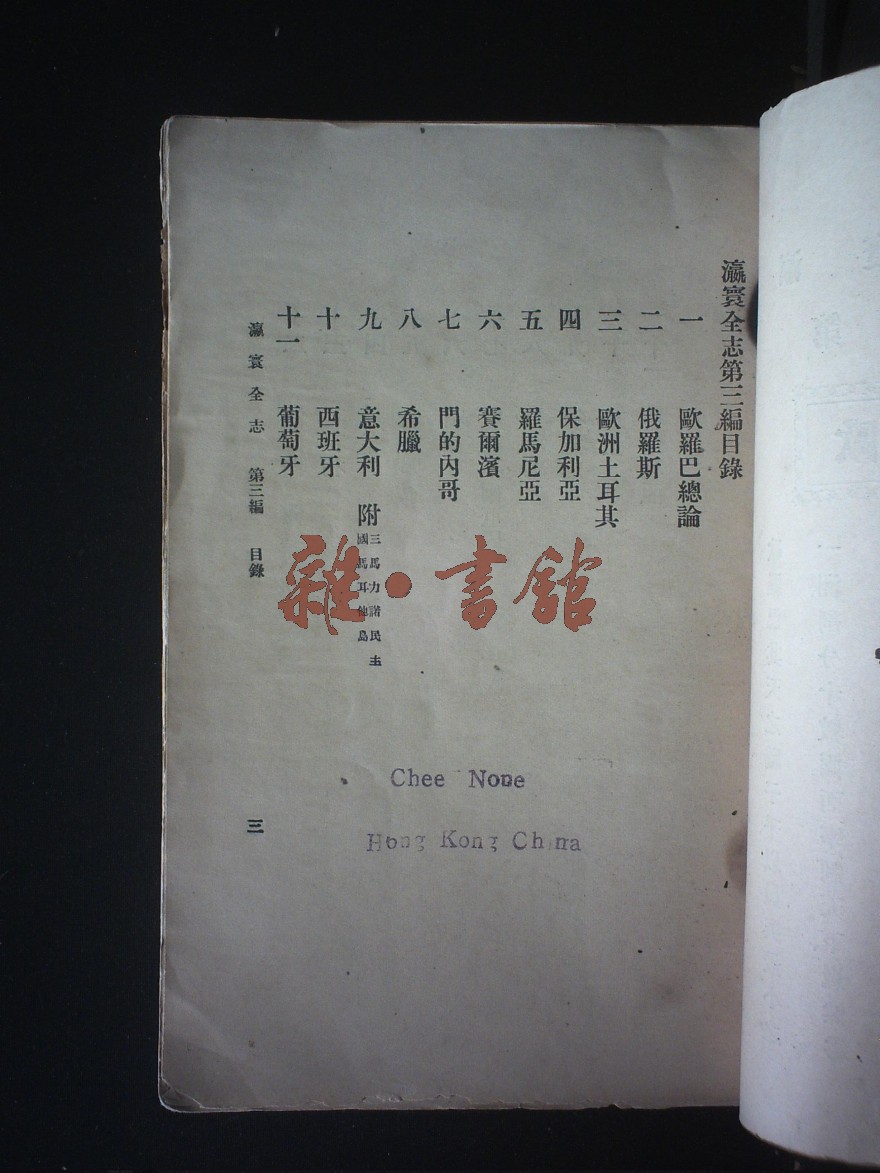 瀛寰全志第三編目錄
一 歐羅巴總論
二 俄羅斯
三 歐洲土耳其
四 保加利亞
五 羅馬尼亞
六 賽爾濱
七 門的內哥
八 希臘
九 意大利 附 三馬力諾民主國馬耳他島
十 西班牙
十一 葡萄牙
瀛寰全志 第三編 目錄 三
雜·書館
Chee None
Hong Kong China